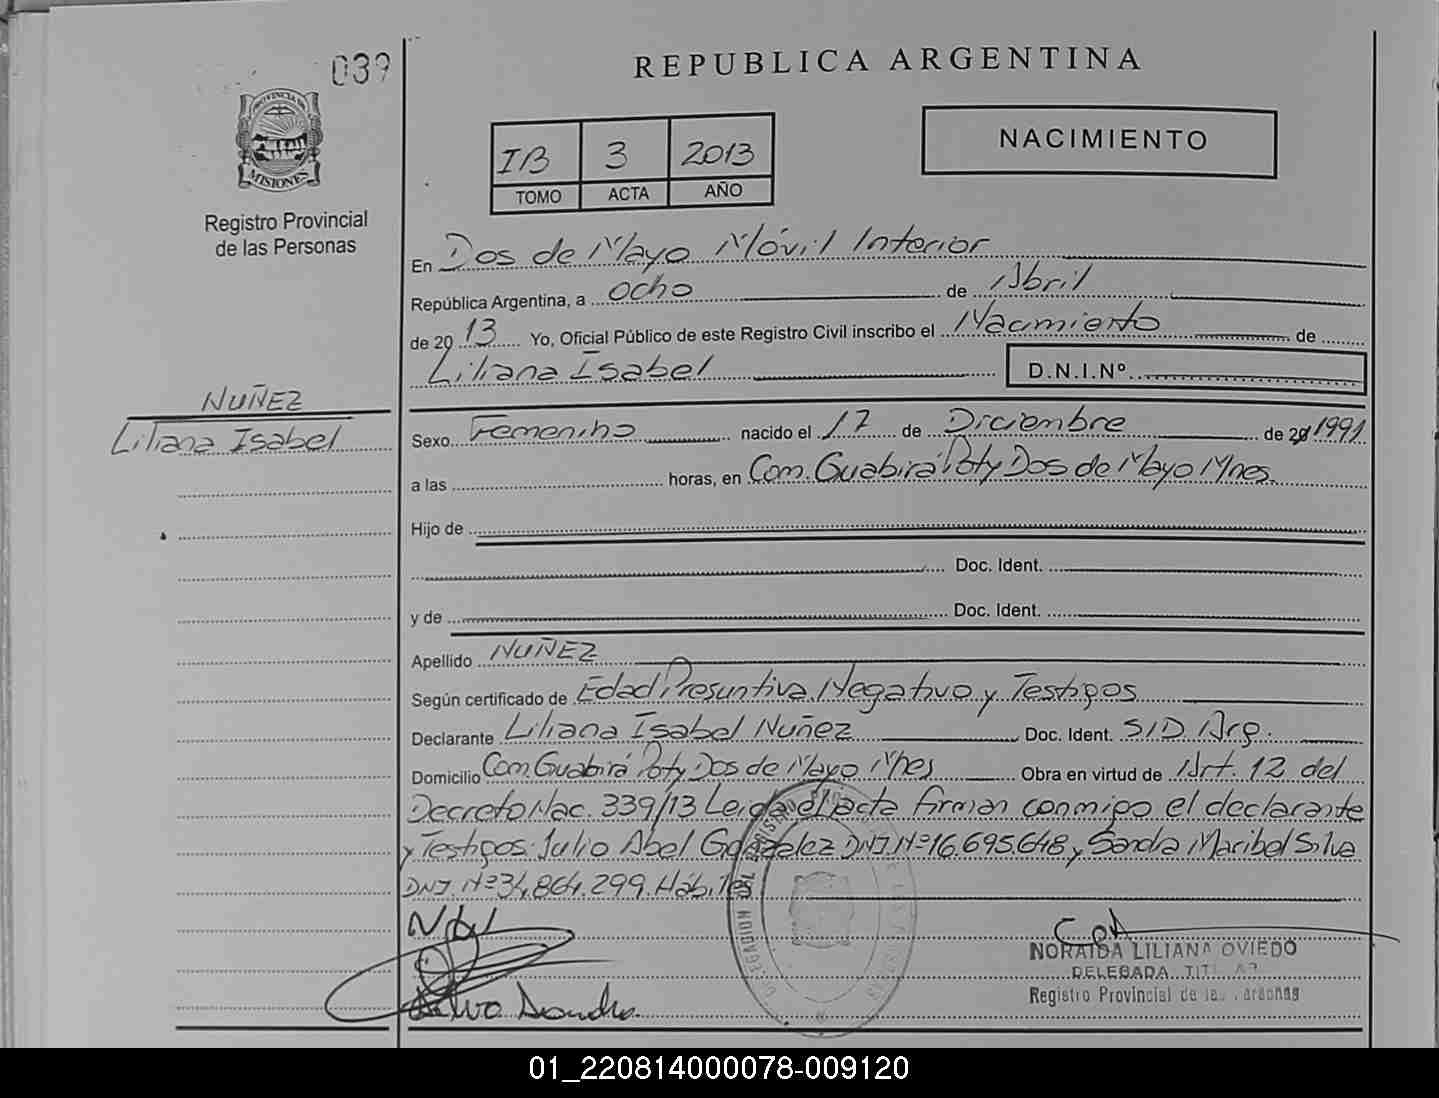 039
REPUBLICA ARGENTINA
PROVINCIA DE
MISIONES
Registro Provincial
de las Personas
IB 3 2013
TOMO ACTA AÑO
NACIMIENTO
En Dos de Mayo Móvil Interior
República Argentina, a ocho de Abril
de 2013 Yo, Oficial Público de este Registro Civil inscribo el Nacimiento de
Liliana Isabel D.N.I.Nº
NUÑEZ
Liliana Isabel
Sexo Femenino nacido el 17 de Diciembre de 20 1991
a las horas, en Com. Guabirá Poty Dos de Mayo Mnes.
Hijo de
Doc. Ident.
y de Doc. Ident.
Apellido NUÑEZ
Según certificado de Edad Presuntiva, Negativo y Testigos
Declarante Liliana Isabel Nuñez Doc. Ident. S/D Arg.
Domicilio Com. Guabirá Poty Dos de Mayo Mnes Obra en virtud de Art. 12 del
Decreto Nac. 339/13 Leida el acta firman conmigo el declarante
y Testigos: Julio Abel Gonzalez DNI Nº 16.695.648 y Sandra Maribel Silva
DNI. Nº 34.864.299. Háb.
NORAIDA LILIANA OVIEDO
DELEGADA
Registro Provincial de las Personas
Silva Sandra
01_220814000078-009120